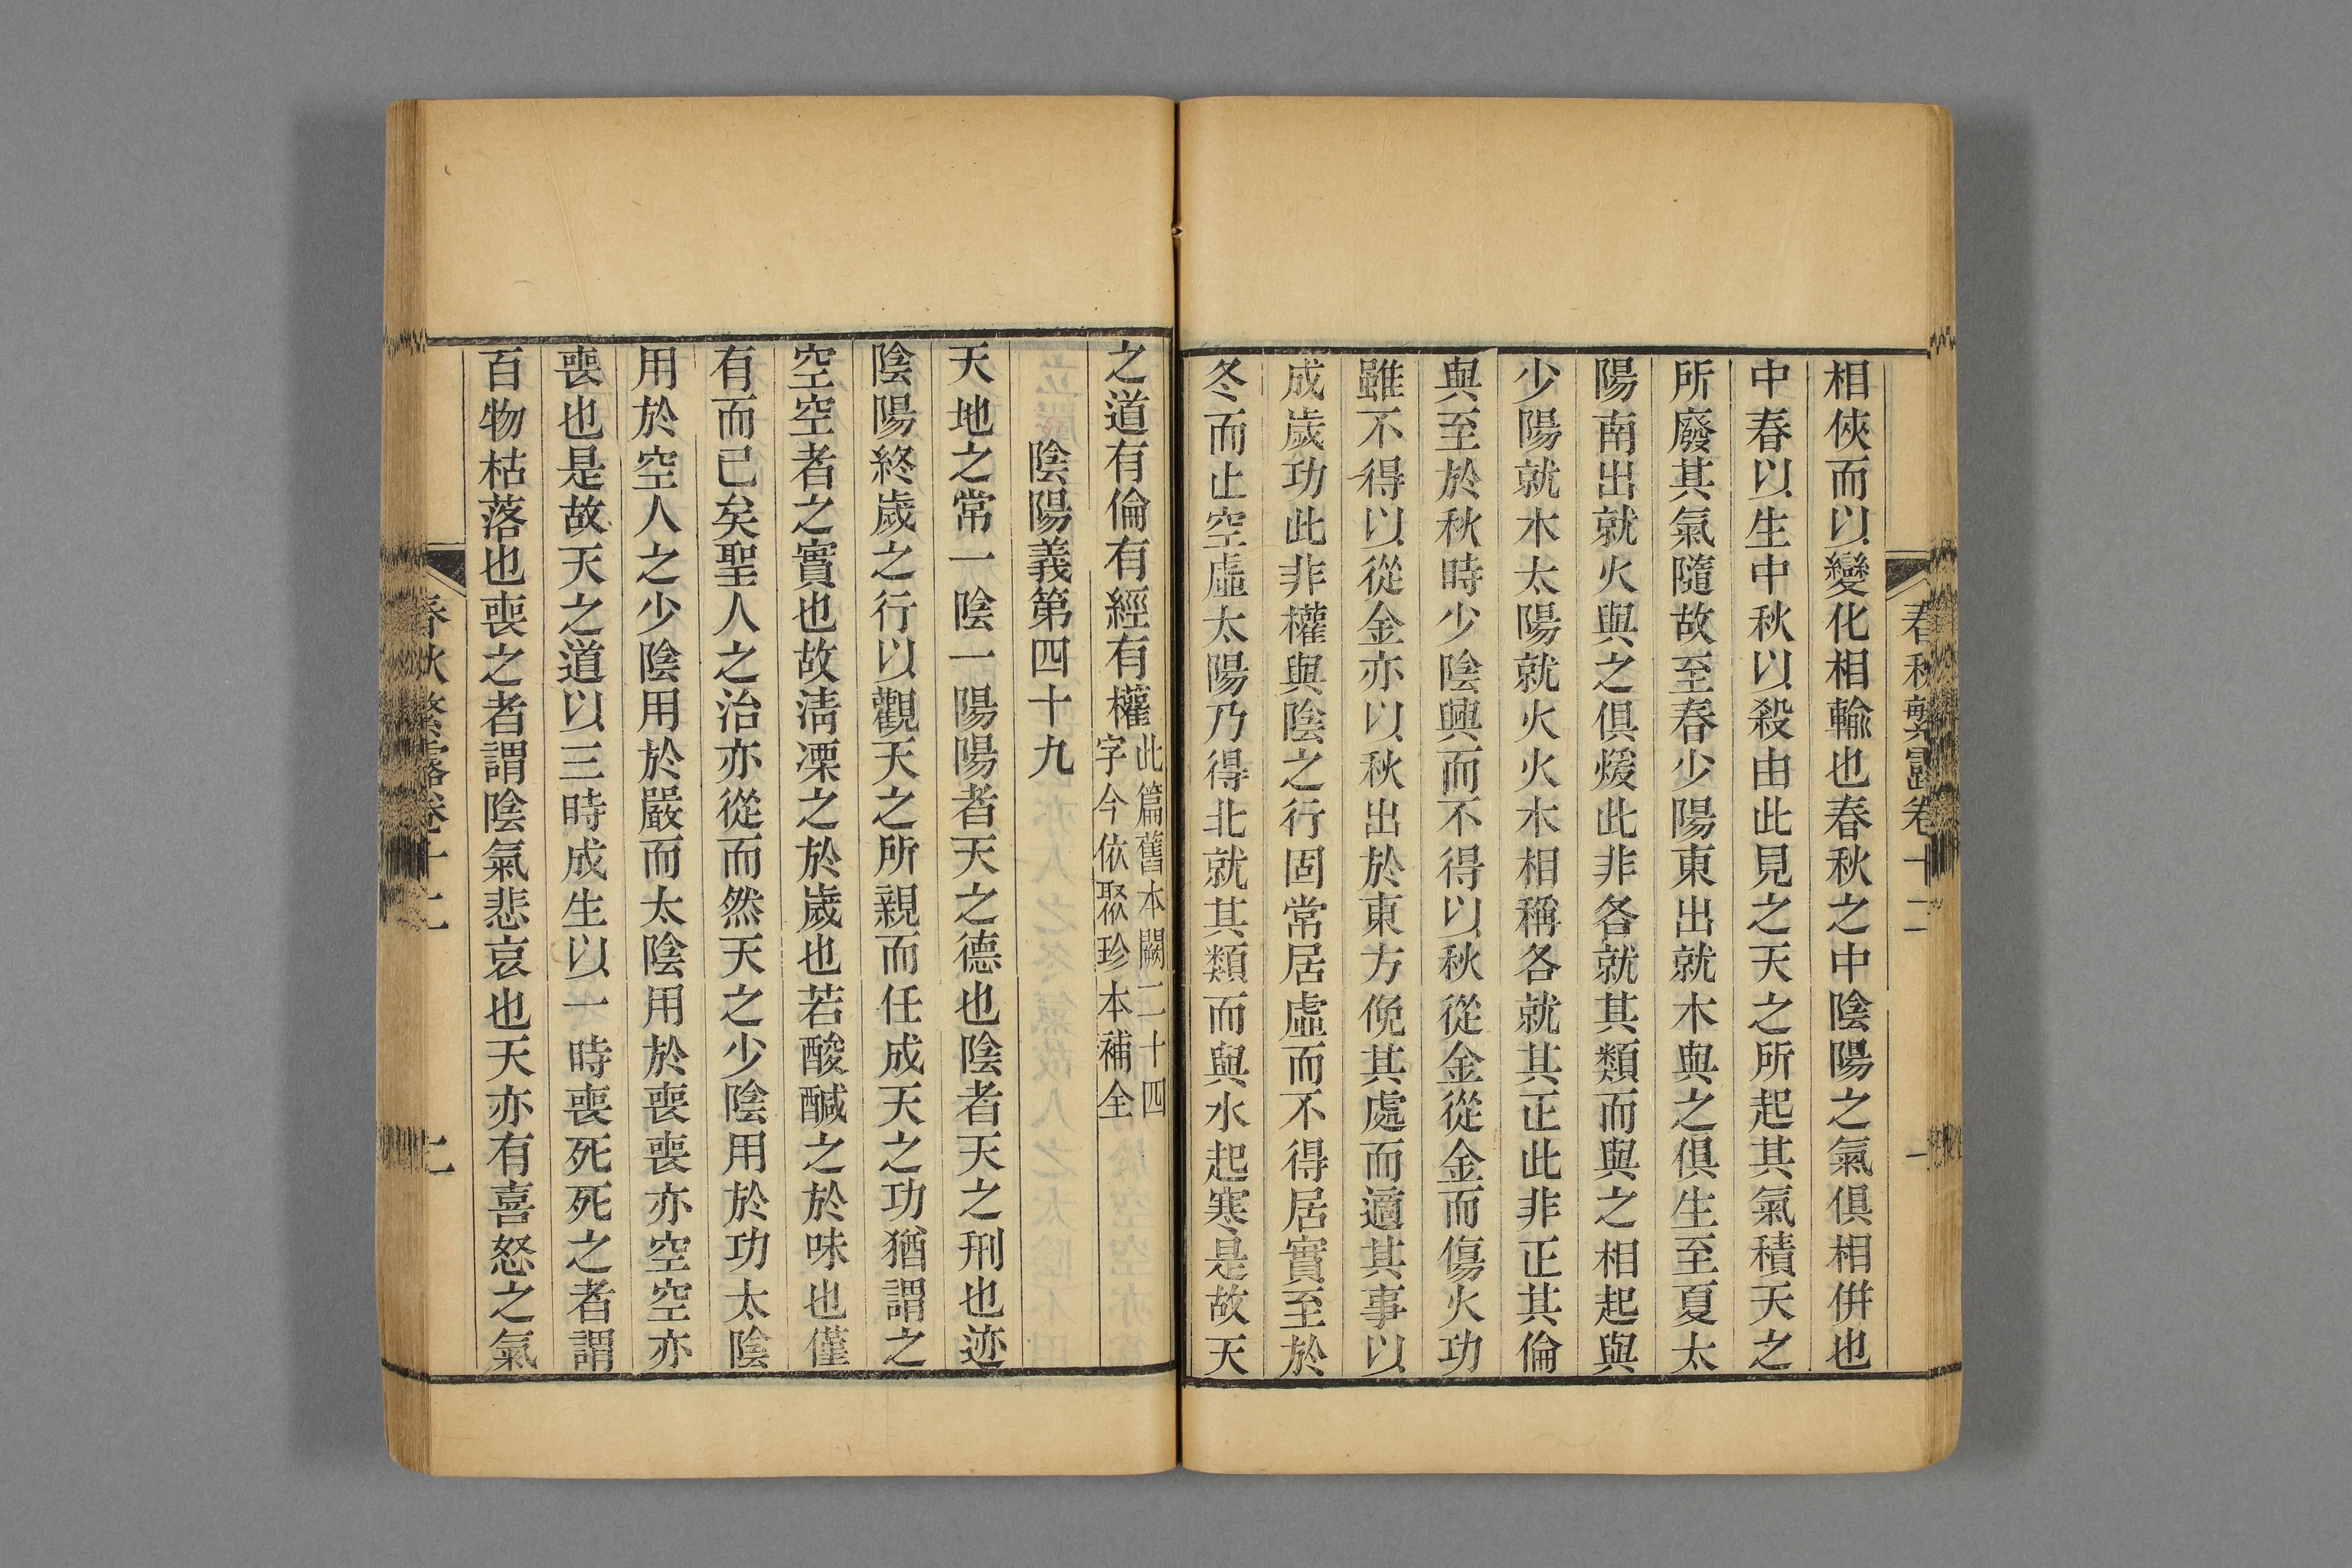 春秋繁露卷十二
一
相俠而以變化相輸也春秋之中陰陽之氣俱相倂也
中春以生中秋以殺由此見之天之所起其氣積天之
所廢其氣隨故至春少陽東出就木與之俱生至夏太
陽南出就火與之俱煖此非各就其類而與之相起與
少陽就木太陽就火火木相稱各就其正此非正其倫
與至於秋時少陰興而不得以秋從金從金而傷火功
雖不得以從金亦以秋出於東方俛其處而適其事以
成歲功此非權與陰之行固常居虛而不得居實至於
冬而止空虛太陽乃得北就其類而與水起寒是故天
之道有倫有經有權
此篇舊本闕二十四
字今依聚珍本補全
陰陽義第四十九
天地之常一陰一陽陽者天之德也陰者天之刑也迹
陰陽終歲之行以觀天之所親而任成天之功猶謂之
空空者之實也故淸凓之於歲也若酸醎之於味也僅
有而已矣聖人之治亦從而然天之少陰用於功太陰
用於空人之少陰用於嚴而太陰用於喪喪亦空空亦
喪也是故天之道以三時成生以一時喪死死之者謂
百物枯落也喪之者謂陰氣悲哀也天亦有喜怒之氣
春秋繁露卷十二